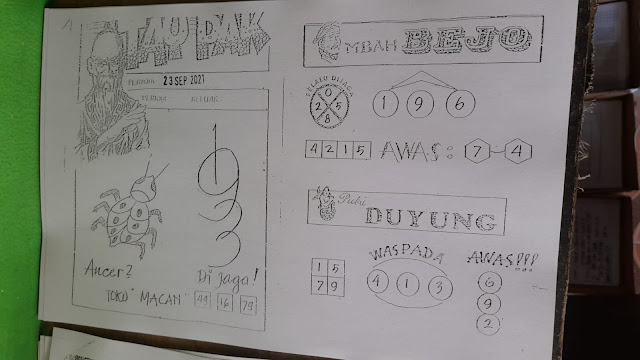 23 SEP 2021
1
9
3
3
Ancer²
Di jaga!
TOKO² MACAN
44 16 79
MBAH BEJO
SELALU DIJAGA
0
2 5
8
1 9 6
4 2 1 5
AWAS: 7-4
Putri
DUYUNG
1 5
7 9
WASPADA
4 1 3
AWAS!!!
6
9
2